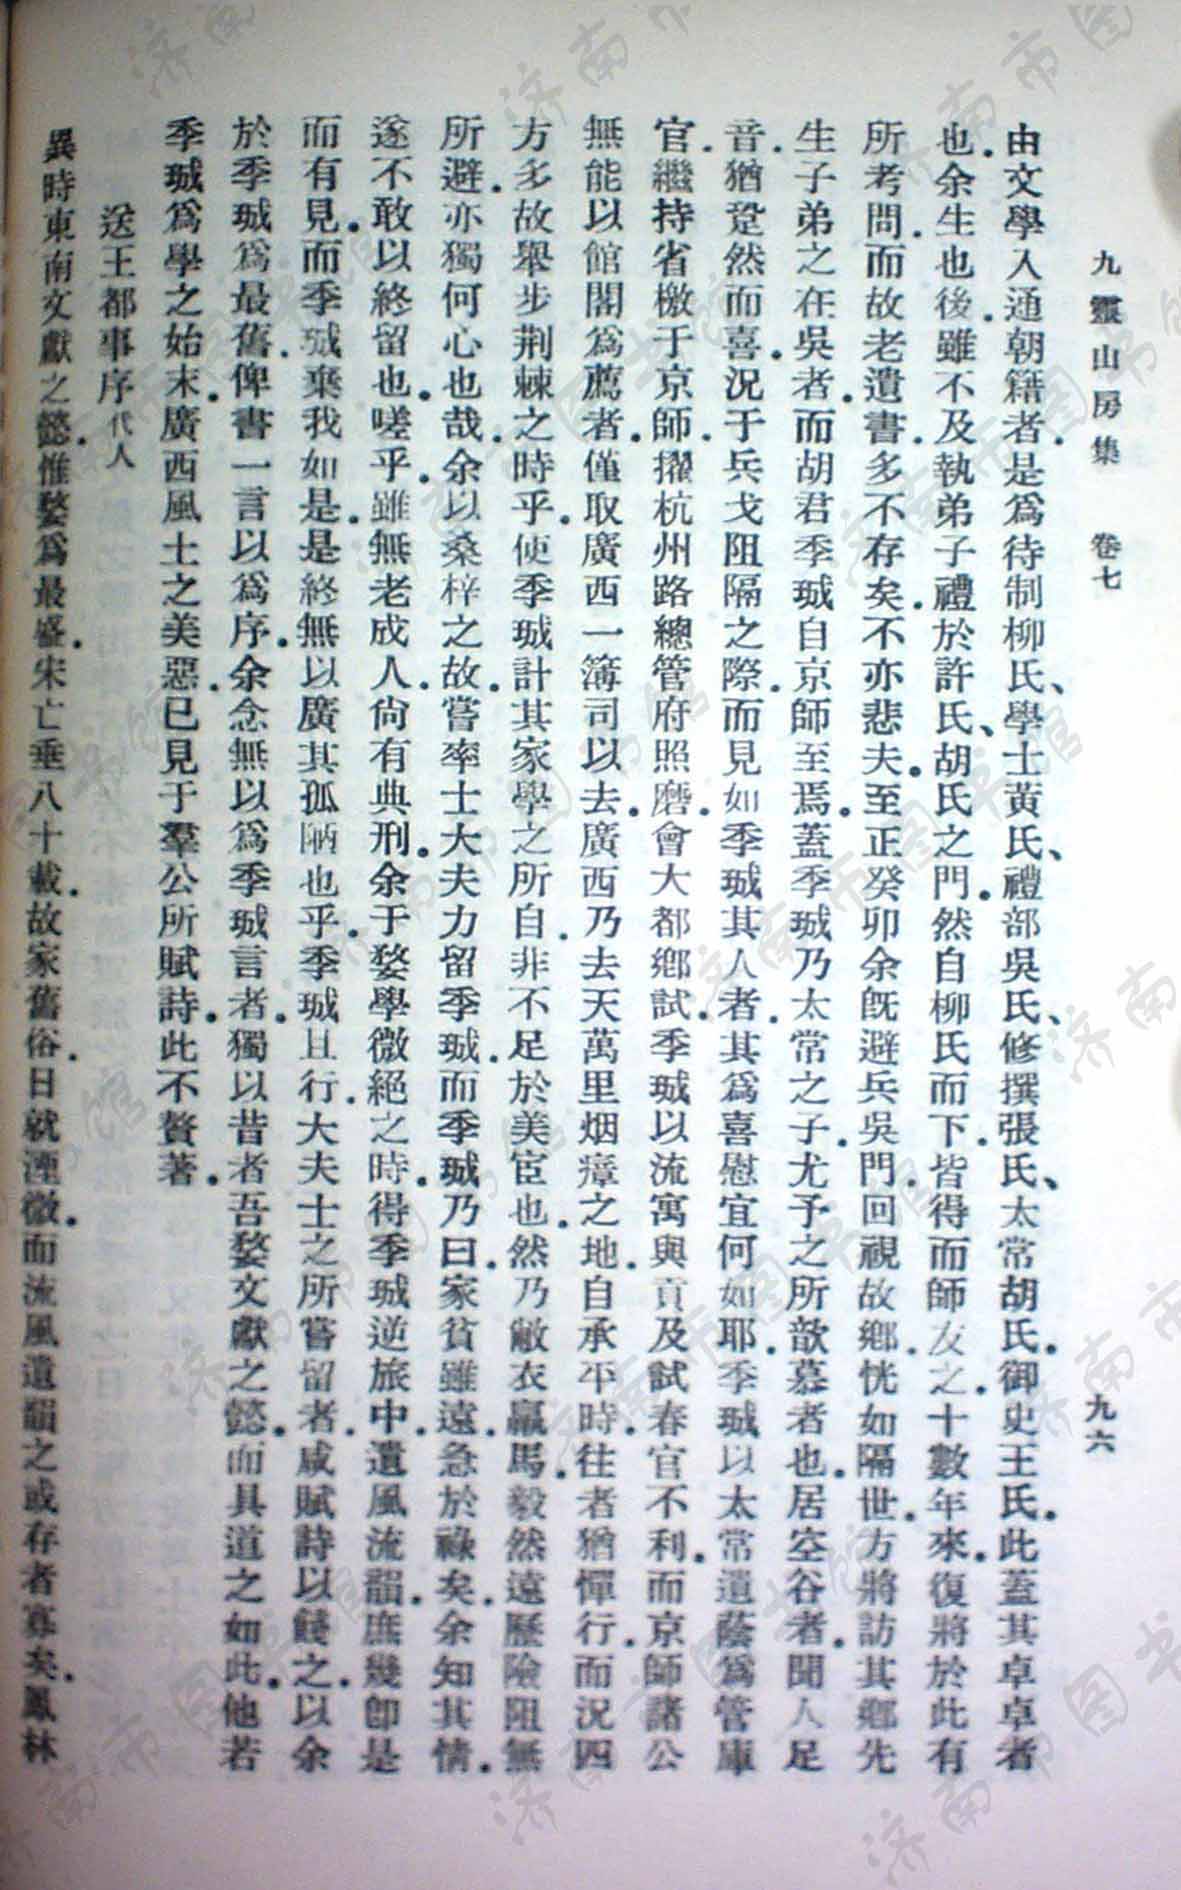 九靈山房集　卷七　九六
由文學入通朝籍者。是爲待制柳氏、學士黃氏、禮部吳氏、修撰張氏、太常胡氏。御史王氏。此蓋其卓卓者
也。余生也後。雖不及執弟子禮於許氏、胡氏之門。然自柳氏而下。皆得而師友之。十數年來。復將於此有
所考問。而故老遺書。多不存矣。不亦悲夫。至正癸卯余旣避兵吳門。回視故鄉。恍如隔世。方將訪其鄉先
生子弟之在吳者。而胡君季珹自京師至焉。蓋季珹乃太常之子。尤予之所歆慕者也。居空谷者。聞人足
音。猶跫然而喜。況于兵戈阻隔之際。而見如季珹其人者。其爲喜慰宜何如耶。季珹以太常遺蔭爲管庫
官。繼持省檄于京師。擢杭州路總管府照磨。會大都鄉試。季珹以流寓與貢。及試春官不利。而京師諸公
無能以館閣爲薦者。僅取廣西一簿司以去。廣西乃去天萬里烟瘴之地。自承平時。往者猶憚行。而況四
方多故。舉步荆棘之時乎。使季珹計其家學之所自。非不足於美宦也。然乃敝衣羸馬。毅然遠歷險阻無
所避。亦獨何心也哉。余以桑梓之故。嘗率士大夫力留季珹。而季珹乃曰。家貧雖遠。急於祿矣。余知其情。
遂不敢以終留也。嗟乎。雖無老成人。尙有典刑。余于婺學微絕之時。得季珹逆旅中。遺風流韻。庶幾卽是
而有見。而季珹棄我如是。是終無以廣其孤陋也乎。季珹且行。大夫士之所嘗留者。咸賦詩以餞之。以余
於季珹爲最舊。俾書一言以爲序。余念無以爲季珹言者。獨以昔者吾婺文獻之懿。而具道之如此。他若
季珹爲學之始末。廣西風土之美惡。已見于羣公所賦詩。此不贅著。
送王都事序代人
異時東南文獻之懿。惟婺爲最盛。宋亡垂八十載。故家舊俗。日就湮微。而流風遺韻之或存者寡矣。鳳林
济南市图书馆